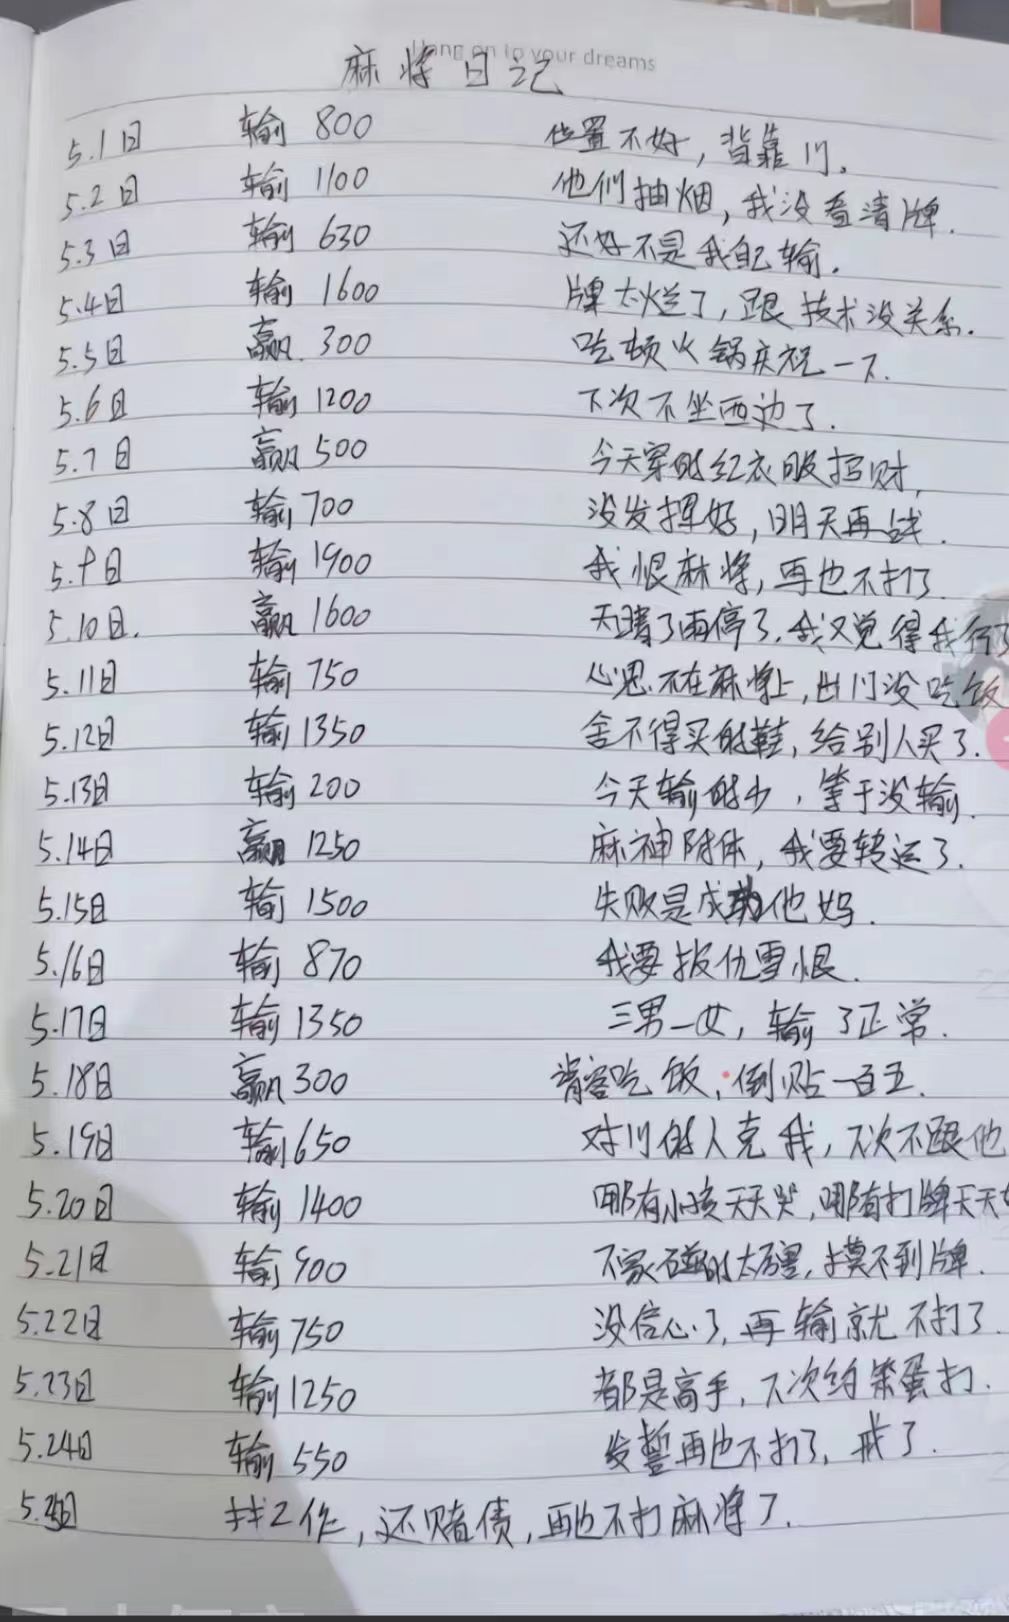 Hang on to your dreams
麻将日记
5.1日 输 800 位置不好，背靠门。
5.2日 输 1100 他们抽烟，我没看清牌.
5.3日 输 630 还好不是我自己输.
5.4日 输 1600 牌太烂了，跟技术没关系.
5.5日 赢. 300 吃顿火锅庆祝一下.
5.6日 输 1200 下次不坐西边了.
5.7日 赢 500 今天穿的红衣服招财，
5.8日 输 700 没发挥好，明天再战.
5.9日 输 1900 我恨麻将，再也不打了
5.10日. 赢 1600 天晴了雨停了.我又觉得我行了
5.11日 输 750 心思不在麻将上，出门没吃饭
5.12日 输 1350 舍不得买的鞋，给别人买了.
5.13日 输 200 今天输的少，等于没输.
5.14日 赢 1250 麻神附体，我要转运了.
5.15日 输 1500 失败是成功他妈.
5.16日 输 870 我要报仇雪恨.
5.17日 输 1350 三男一女，输了正常.
5.18日 赢 300 请客吃饭，倒贴一百五.
5.19日 输 650 对门的人克我，下次不跟他
5.20日 输 1400 哪有小孩天天哭，哪有打牌天天
5.21日 输 900 下家碰的太厉害，摸不到牌.
5.22日 输 750 没信心了，再输就不打了.
5.23日 输 1250 都是高手，下次约笨蛋打.
5.24日 输 550 发誓再也不打了，戒了.
5.25日 找工作，还赌债，再也不打麻将了.